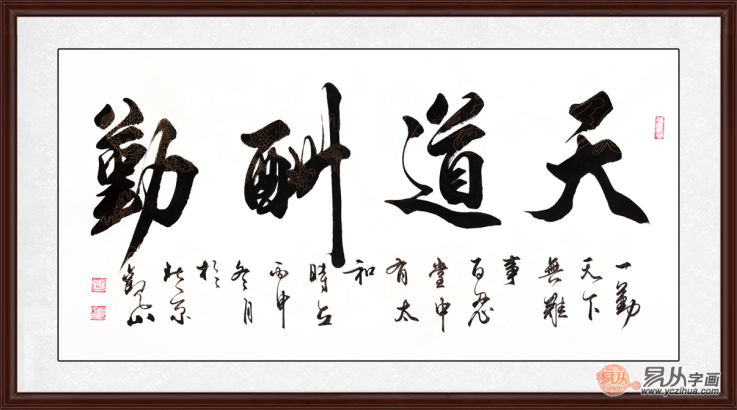 天道酬勤
一勤
天下
無難
事
百忍
堂中
有太
和
時在
丙申
冬月
於
北京
易从
易从字画
www.yczihua.com